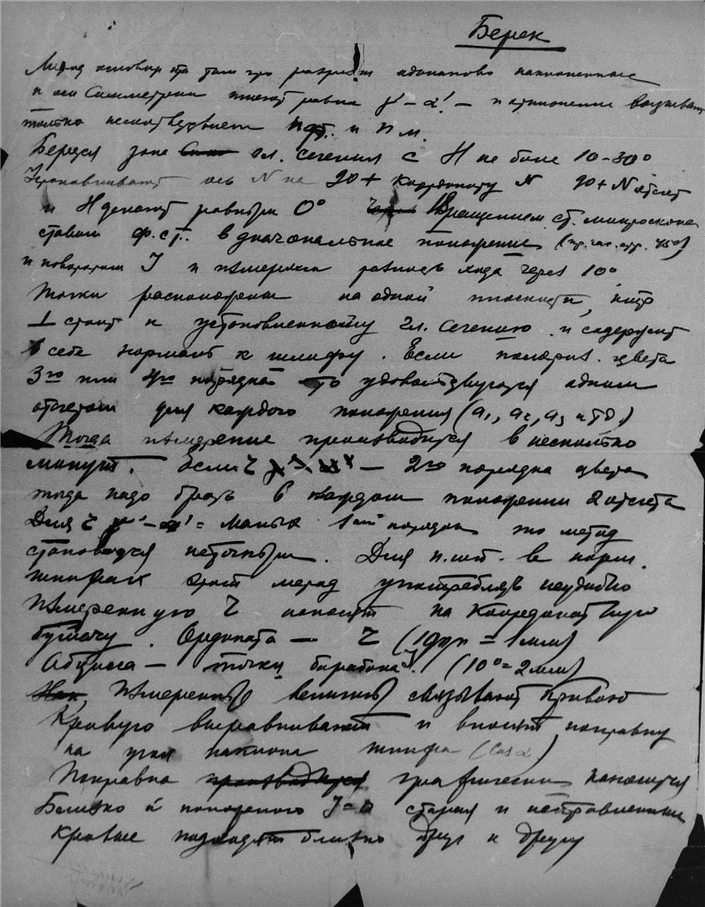 Берек
Метод основан на том что разрезы одинаково наклоненные
к оси симметрии имеют равна γ'–α' – и отклонение вызывает
только несоответствием Nст. и Nм.
Берется зоне гл. сечения с H не более 10–30°
Устанавливают ось N на 90 + координату N 90 + N отсчет
и H делают равным 0° Вращением ст. микроскопа
ставим ф.ст. в диагональное положение 45°)
и поворотам J и измеряем разность хода через 10°
Точки расположены на одной плоскости, котор
⊥ стоит к установленному гл. сечению и содержит
в себе нормаль к шлифу. Если поляриз. цвета
3го или 4го порядка то удовлетворяются одним
отсчетом для каждого положения (a1, a2, a3 и тд)
Тогда измерение производится в несколько
минут. Если – 2го порядка цвета
тогда надо брать в каждом положении 2 отсчета
Для = малых порядка то метод
становится неточным. Для в норм.
шлифах этот метод употреблять неудобно
Измеренную наносят на координатную
бумагу. Ордината – (= 1мм)
Абцисса – точки барабана J. (10° = 2мм)
Измеренные величины связывают кривою
Кривую выравнивают и вносят поправку
на угол наклона шлифа (Cos α)
Поправка производится графически наносится
Близко к положению J=0 старая и исправленные
кривые подходят близко друг к другу